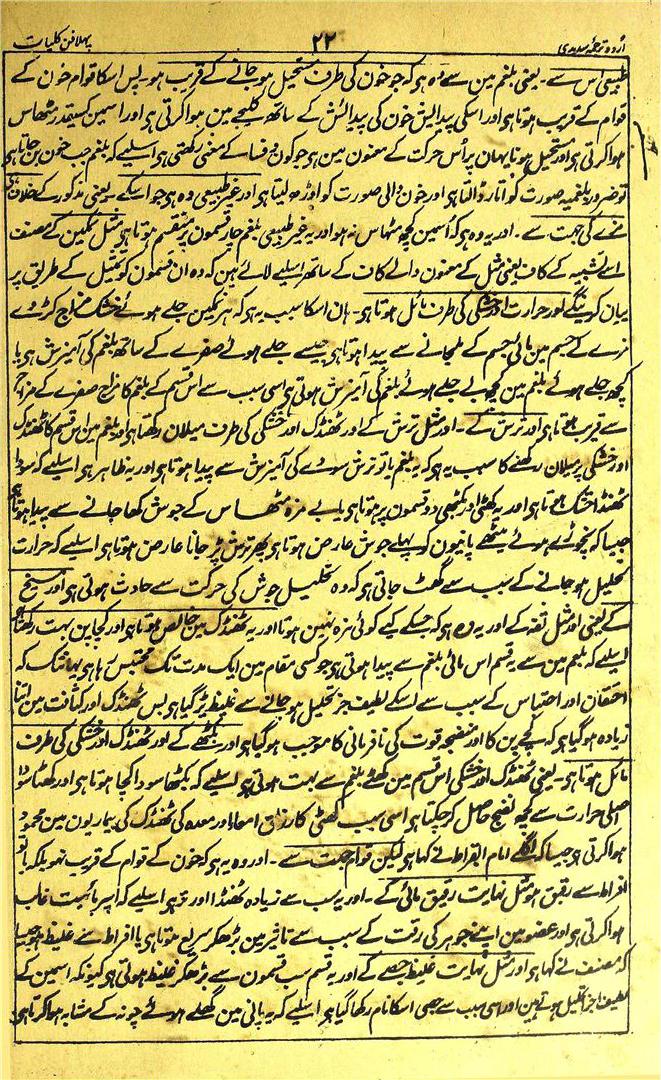 اُردو ترجمہ سدیدی ۲۲ پہلا فن کلیات
طبیعی اُس سے۔ یعنی بلغم مین سے وُہ ہی کہ جو خون کی طرف مستحیل ہو جانے کے قریب ہو۔ پس اسکا قوام خون کے
قوام کے قریب ہوتا ہی اور اسکی پیدایش خون کی پیدائش کے ساتھ کلیجے مین ہوا کرتی ہی اور اسمین کسیقدر مٹھاس
ہوا کرتی ہی اور مستحیل ہونا یہان پر اُس حرکت کے معنون مین ہی جو کون و فساد کے معنی رکھتی ہی اسلیے کہ بلغم جب خون بن جاتا ہی
تو ضرور بلغمیہ صورت کو اُتار ڈالتا ہی اور خون والی صورت کو اوڑھ لیتا ہی اور غیر طبیعی وہ ہی جو اسکے۔ یعنی مذکور کے خلاف ہی
مزے کی جہت سے۔ اور یہ وہ ہی کہ اُسمین کچھ مٹھاس نہو اور یہ غیر طبیعی بلغم چار قسمون پر منقسم ہوتا ہی مثل نمکین کے مصنف
اسے تشبیہ کے کاف یعنی مثل کے معنون والے کاف کے ساتھ اسلیے لائے ہین کہ وہ ان قسمون کو تمثیل کے طریق پر
بیان کرینگے اور حرارت اور خشکی کی طرف مائل ہوتا ہی۔ ہان اسکا سبب یہ ہی کہ ہر نمکین جلے ہوئے خشک مزاج کڑوے
مزے کے جسم مین مائی جسم کے ملجانے سے پیدا ہوتا ہی جیسے جلے ہوئے صفرے کے ساتھ بلغم کی آمیزش ہی یا
کچھ جلے ہوئے بلغم مین کچھ بے جلے ہوئے بلغم کی آمیزش ہوتی ہی اسی سبب سے اس قسم کے بلغم کا مزاج صفرے کے مزاج
سے قریب ہوتا ہی اور ترش کے۔ اور مثل ترش کے اور ٹھنڈک اور خشکی کی طرف میلان رکھتا ہی اور بلغم مین اس قسم کا ٹھنڈک
اور خشکی پر میلان رکھنے کا سبب یہ ہی کہ یہ بلغم یا تو ترش سودے کی آمیزش سے پیدا ہوتا ہی اور یہ ظاہر ہی اسلیے کہ سودا
ٹھنڈا خشک ہوتا ہی اور یہ کھٹی اور کٹھی دو قسمون پر ہوتا ہی یا بے مزہ مٹھاس کے جوش کھا جانے سے پیدا ہوتا ہی
جیسا کہ نچوڑے ہوئے میٹھے پانیون کو پہلے جوش عارض ہوتا ہی پھر ترش پڑ جانا عارض ہوتا ہی اسلیے کہ حرارت
تحلیل ہو جانے کے سبب سے گھٹ جاتی ہی کہ وہ تحلیل جوش کی حرکت سے حادث ہوتی ہی اور مسیخ
کے یعنی اور مثل تفہ کے اور یہ وہ ہی کہ جسکے لیے کوئی مزہ نہین ہوتا اور یہ ٹھنڈک مین خالص ہوتا ہی اور کچاپن بہت رکھتا ہی
اسلیے کہ بلغم مین سے یہ قسم اس مائی بلغم سے پیدا ہوتی ہی جو کسی مقام مین ایک مدت تک محتبس رہا ہی یہانتک کہ
احتقان اور احتباس کے سبب سے اسکے لطیف جز تحلیل ہو جانے سے غلیظ پڑ گیا ہی پس ٹھنڈک اور کثافت مین اتنا
زیادہ ہوگیا ہی کہ کچے پن کا اور منضجہ قوت کی نافرمانی کا موجب ہوگیا ہی اور بکٹھے کے اور ٹھنڈک اور خشکی کی طرف
مائل ہوتا ہی۔ یعنی ٹھنڈک اور خشکی اس قسم مین کھٹے بلغم سے بہت ہوتی ہی اسلیے کہ بکٹھا سودا کچا ہوتا ہی اور کھٹا سودا
اصلی حرارت سے کچھ نضج حاصل کر چکتا ہی اسی سبب کھٹی ڈکار زلق امعا اور معدہ کی ٹھنڈک کی بیماریون مین محمود
ہوا کرتی ہی جیسا کہ اگلے امام القراط نے کہا ہی لیکن قوام جہت سے۔ اور وہ یہ ہی کہ خون کے قوام کے قریب نہو بلکہ یا تو
افراط سے رقیق ہو مثل نہایت رقیق مائی کے۔ اور یہ سب سے زیادہ ٹھنڈا اور تر ہی اسلیے کہ اسپر مائیت غالب
ہوا کرتی ہی اور عضو مین اپنے جوہر کی رقت کے سبب سے تاثیر مین بڑھکر سریع ہوتا ہی یا افراط سے غلیظ ہو جیسا
کہ مصنف نے کہا ہی اور مثل نہایت غلیظ جصّے کے اور یہ قسم سب قسمون سے بڑھکر غلیظ ہوتی ہی کیونکہ اسمین کے
لطیف اجزا تحلیل ہوتے ہین اور اسی سبب سے جصی اسکا نام رکھا گیا ہی اسلیے کہ یہ پانی مین گھلے ہوئے چونہ کے مشابہ ہوا کرتا ہی